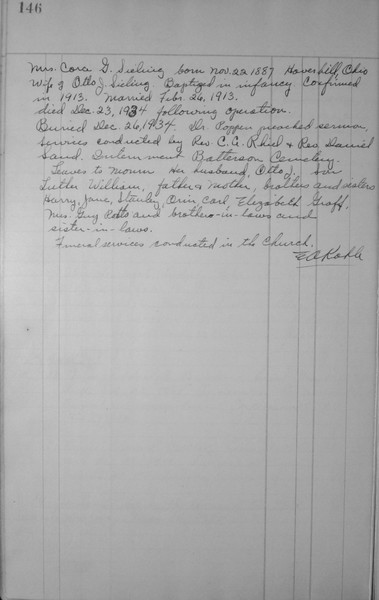 146
Mrs. Cora D. Sieling born Nov. 22 1887 Haverhill, Ohio
Wife of Otto J. Sieling Baptized in infancy Confirmed
in 1913. Married Febr. 26, 1913.
died Dec. 23, 1934 following operation.
Buried Dec. 26, 1934. Dr Poppen preached sermon,
Services conducted by Rev. C. G. & Rev Daniel
Sand. Interment Batterson Cemetery.
Leaves to mourn Her husband, Otto J. son
Luther William, father & mother, brothers and sisters
Harry, Jane, Stanley, Orin Carl, Elizabeth Graff,
Mrs. Guy and brothers-in-laws and
sister-in-laws.
Funeral services conducted in the Church.